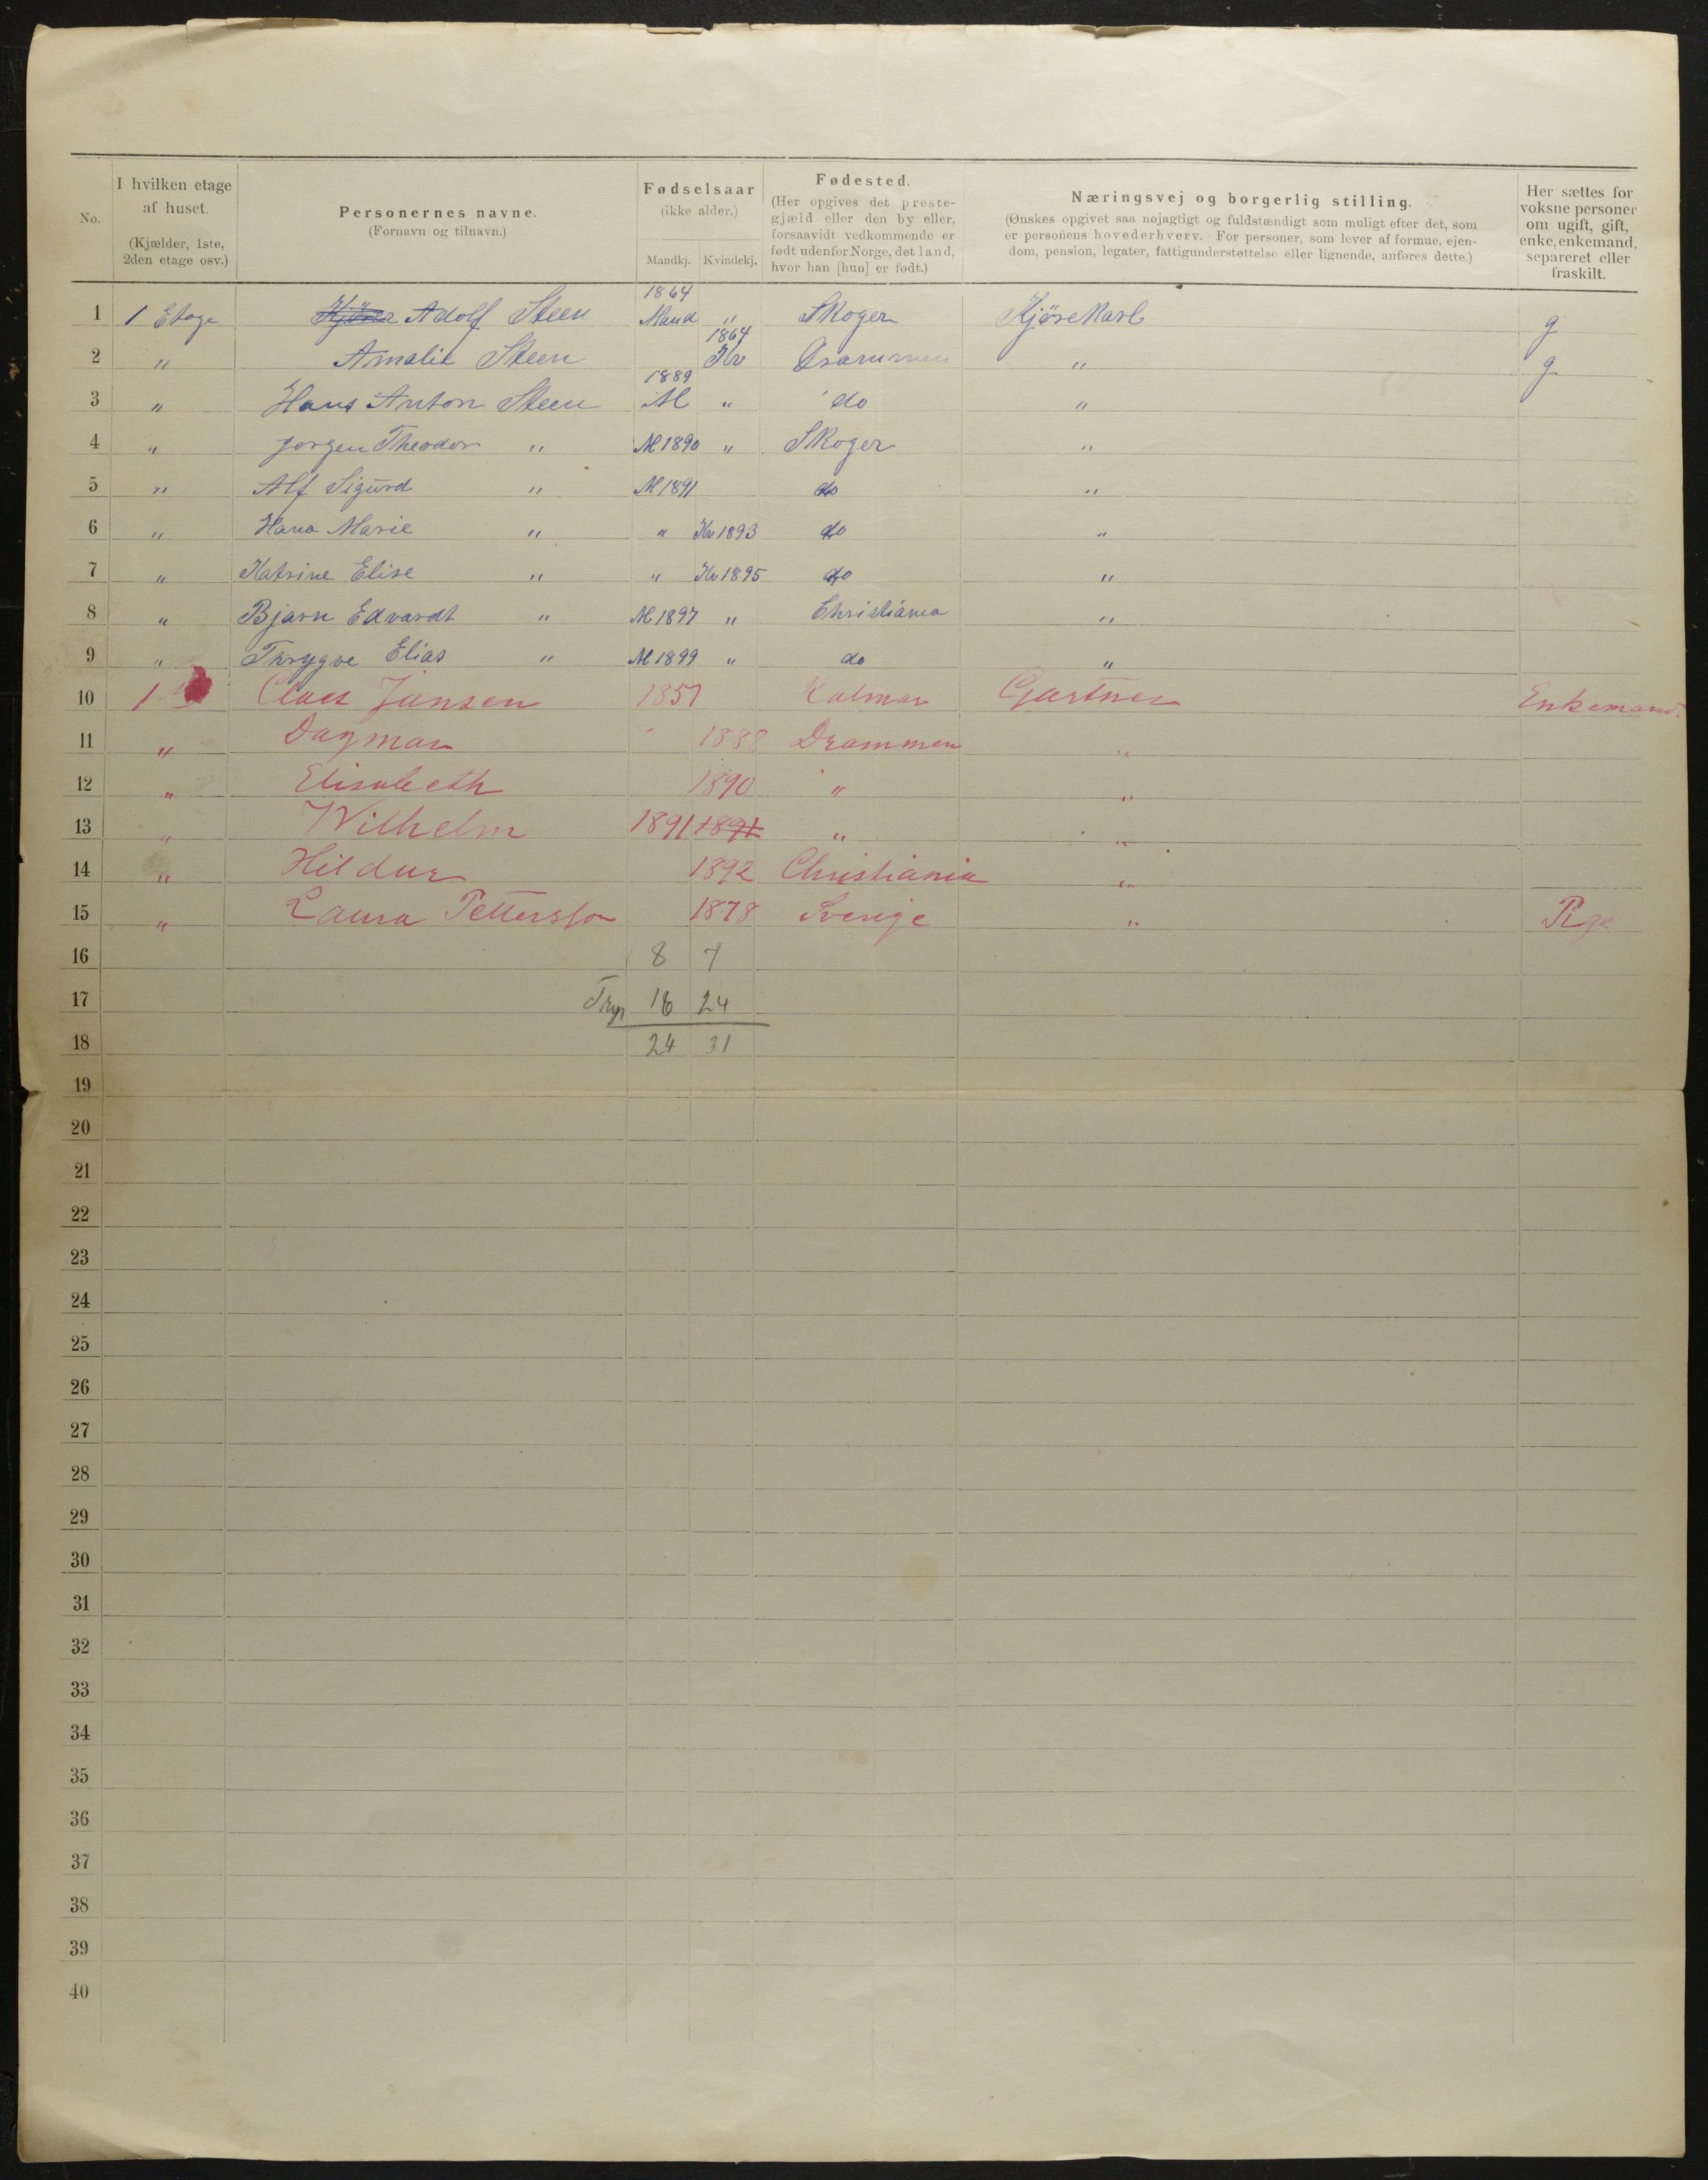 No.
I hvilken etage af huset. (Kjælder, 1ste, 2den etage osv.)
Personernes navne. (Fornavn og tilnavn.)
Fødselsaar (ikke alder.) Mandkj. Kvindekj.
Fødested. (Her opgives det prestegjæld eller den by eller, forsaavidt vedkommende er født udenfor Norge, det land, hvor han [hun] er født.)
Næringsvej og borgerlig stilling. (Ønskes opgivet saa nøjagtigt og fuldstændigt som muligt efter det, som er personens hovederhverv. For personer, som lever af formue, ejendom, pension, legater, fattigunderstøttelse eller lignende, anføres dette.)
Her sættes for voksne personer om ugift, gift, enke, enkemand, separeret eller fraskilt.
1 1 Etage Adolf Steen 1864 Mand " Skoger Kjørekarl g
2 " Amalie Steen 1864 Kv Drammen " g
3 " Hans Anton Steen 1889 M " do "
4 " Jørgen Theodor " M 1890 " Skoger "
5 " Alf Sigurd " M 1891 do "
6 " Hana Marie " " Kv 1893 do "
7 " Katrine Elise " " Kv 1895 do "
8 " Bjarn Edvardt " M 1897 " Christiania "
9 " Thrygve Elias " M 1899 " do "
10 1 Claes Jansen 1857 Kalmar Gartner Enkemand.
11 " Dagmar 1888 Drammen "
12 " Elisabeth 1890 " "
13 " Wilhelm 1891 1891 " "
14 " Hildur 1892 Christiania "
15 " Laura Petterson 1878 Sverige " Pige
16 8 7
17 16 24
18 24 31
19
20
21
22
23
24
25
26
27
28
29
30
31
32
33
34
35
36
37
38
39
40